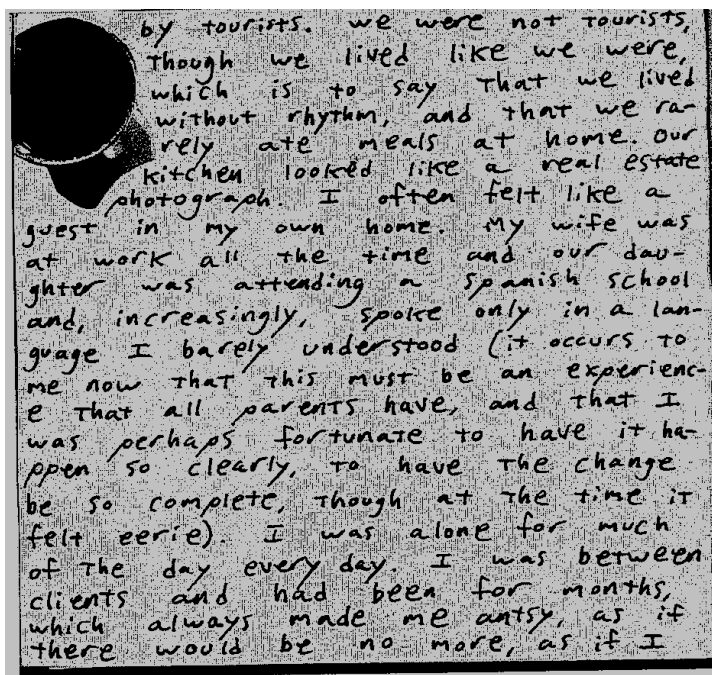 by tourists. we were not tourists,
Though we lived like we were,
which is to say that we lived
without rhythm, and that we ra-
rely ate meals at home. our
kitchen looked like a real estate
photograph. I often felt like a
guest in my own home. My wife was
at work all the time and our dau-
ghter was attending a spanish school
and, increasingly, spoke only in a lan-
guage I barely understood (it occurs to
me now that this must be an experienc-
e that all parents have, and that I
was perhaps fortunate to have it ha-
ppen so clearly, to have the change
be so complete, though at the time it
felt eerie). I was alone for much
of the day every day. I was between
clients and had been for months,
which always made me antsy, as if
there would be no more, as if I